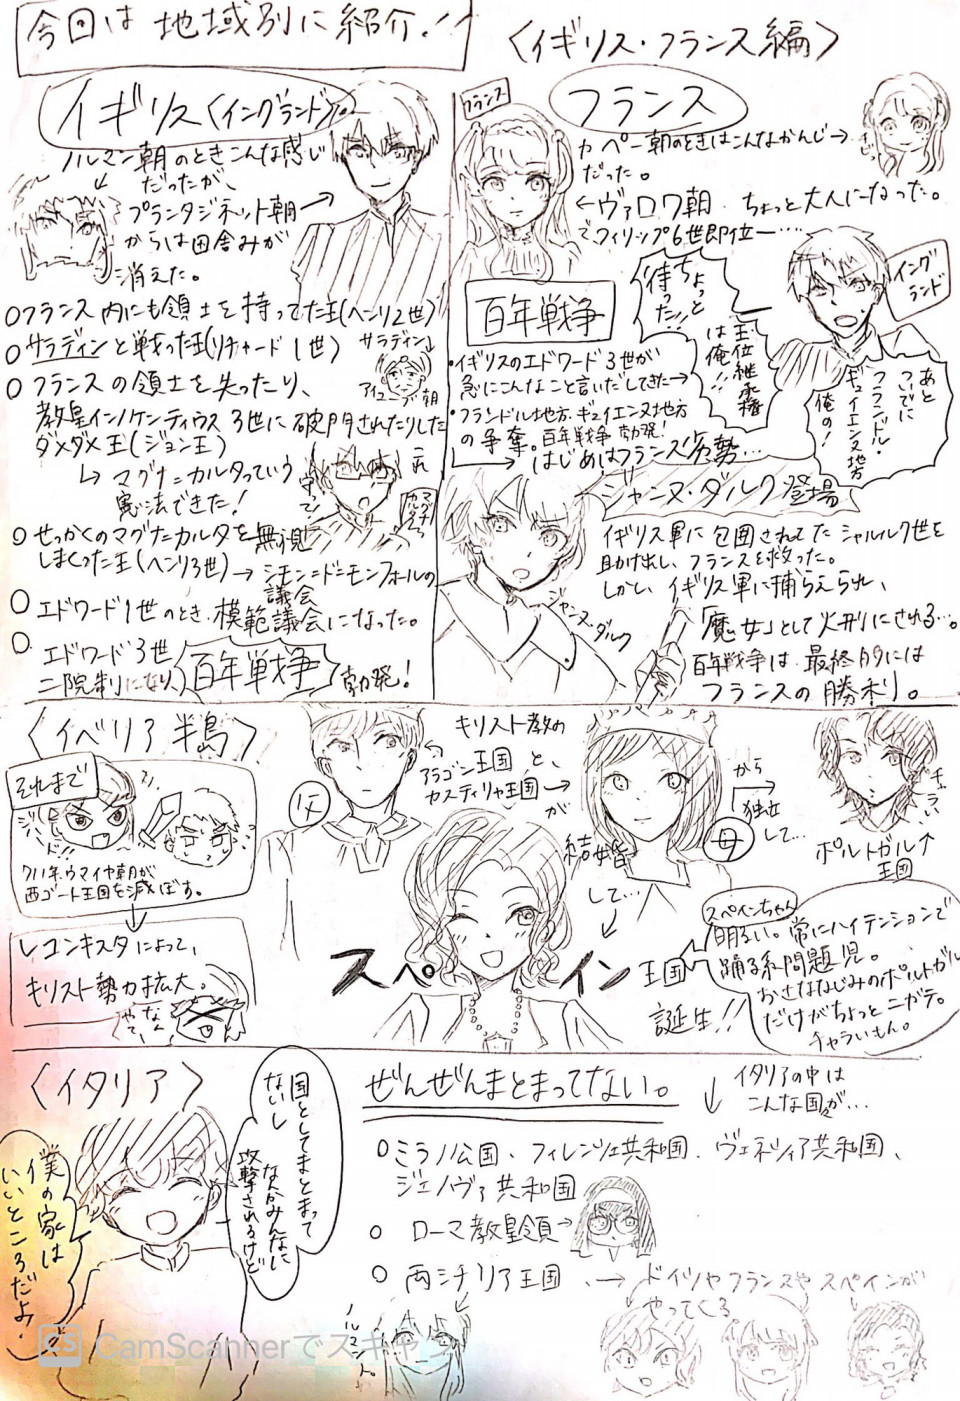 今回は地域別に紹介!!
〈イギリス・フランス編〉
イギリス〈イングランド〉。
ノルマン朝のときこんな感じ
だったが、
プランタジネット朝→
からは田舎みが
消えた。
○フランス内にも領土を持ってた王(ヘンリ2世)
○サラディンと戦った王(リチャード1世)
サラディン↓
アイユーブ朝
○フランスの領土を失ったり、
教皇インノケンティウス3世に破門されたりした
ダメダメ王(ジョン王)
↳マグナ=カルタっていう
憲法できた!
これ
守って!
マグナ
カルタ
○せっかくのマグナ=カルタを無視
しまくった王(ヘンリ3世)→シモン=ド=モンフォールの
議会
○エドワード1世のとき模範議会になった。
○エドワード3世
二院制になり、百年戦争勃発!
フランス
フランス
カペー朝のときはこんなかんじ→
だった。
←ヴァロワ朝 ちょっと大人になった。
でフィリップ6世即位ー‥‥
イング
ランド
ちょっと
待ったッ!!
王位継承権
は俺!!
あと
ついでに
フランドル・
ギュイエンヌ地方
俺の!
百年戦争
・イギリスのエドワード3世が
急にこんなこと言いだしてきた→
・フランドル地方、ギュイエンヌ地方
の争奪。百年戦争勃発!
↳はじめはフランス劣勢…
ジャンヌ・ダルク登場
イギリス軍に包囲されてたシャルル7世を
助け出し、フランスを救った。
しかし、イギリス軍に捕らえられ、
「魔女」として火刑にされる…。
百年戦争は最終的には
フランスの勝利。
ジャンヌ
ダルク
〈イベリア半島〉
それまで
711年ウマイヤ朝が
西ゴート王国を滅ぼす。
レコンキスタによって、
キリスト勢力拡大。
なん
やて
父
キリスト教の
アラゴン王国と、
カスティリャ王国→
が
結婚
して…
母
から
独立
して…
チャラい
ポルトガル↑
王国
スペイン王国
誕生!!
スペインちゃん
明るい。常にハイテンションで
踊る系問題児。
おさななじみのポルトガル
だけがちょっとニガテ。
チャラいもん。
〈イタリア〉
僕の家は
いいところだよ。
国としてまとまって
ないし
なんかみんなに
攻撃されるけど
ぜんぜんまとまってない。
イタリアの中は
↓こんな国々が…
○ミラノ公国、フィレンツェ共和国、ヴェネツィア共和国、
ジェノヴァ共和国
○ローマ教皇領→
○両シチリア王国→ドイツやフランスやスペインが
やってくる
ノルマン人。
CS CamScannerでスキャ